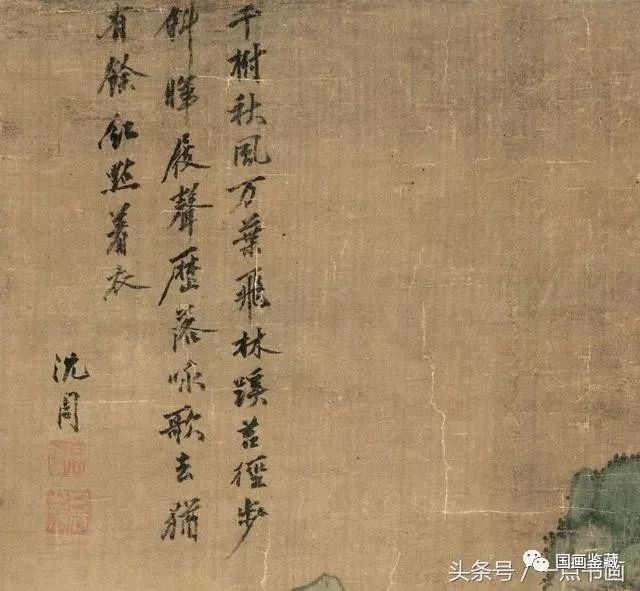 千樹秋風万葉飛林蹊苔徑步
斜暉屐聲歷落咏歌去猶
有餘紅點着衣
沈周
国画鉴藏
头条号 / 一点书画